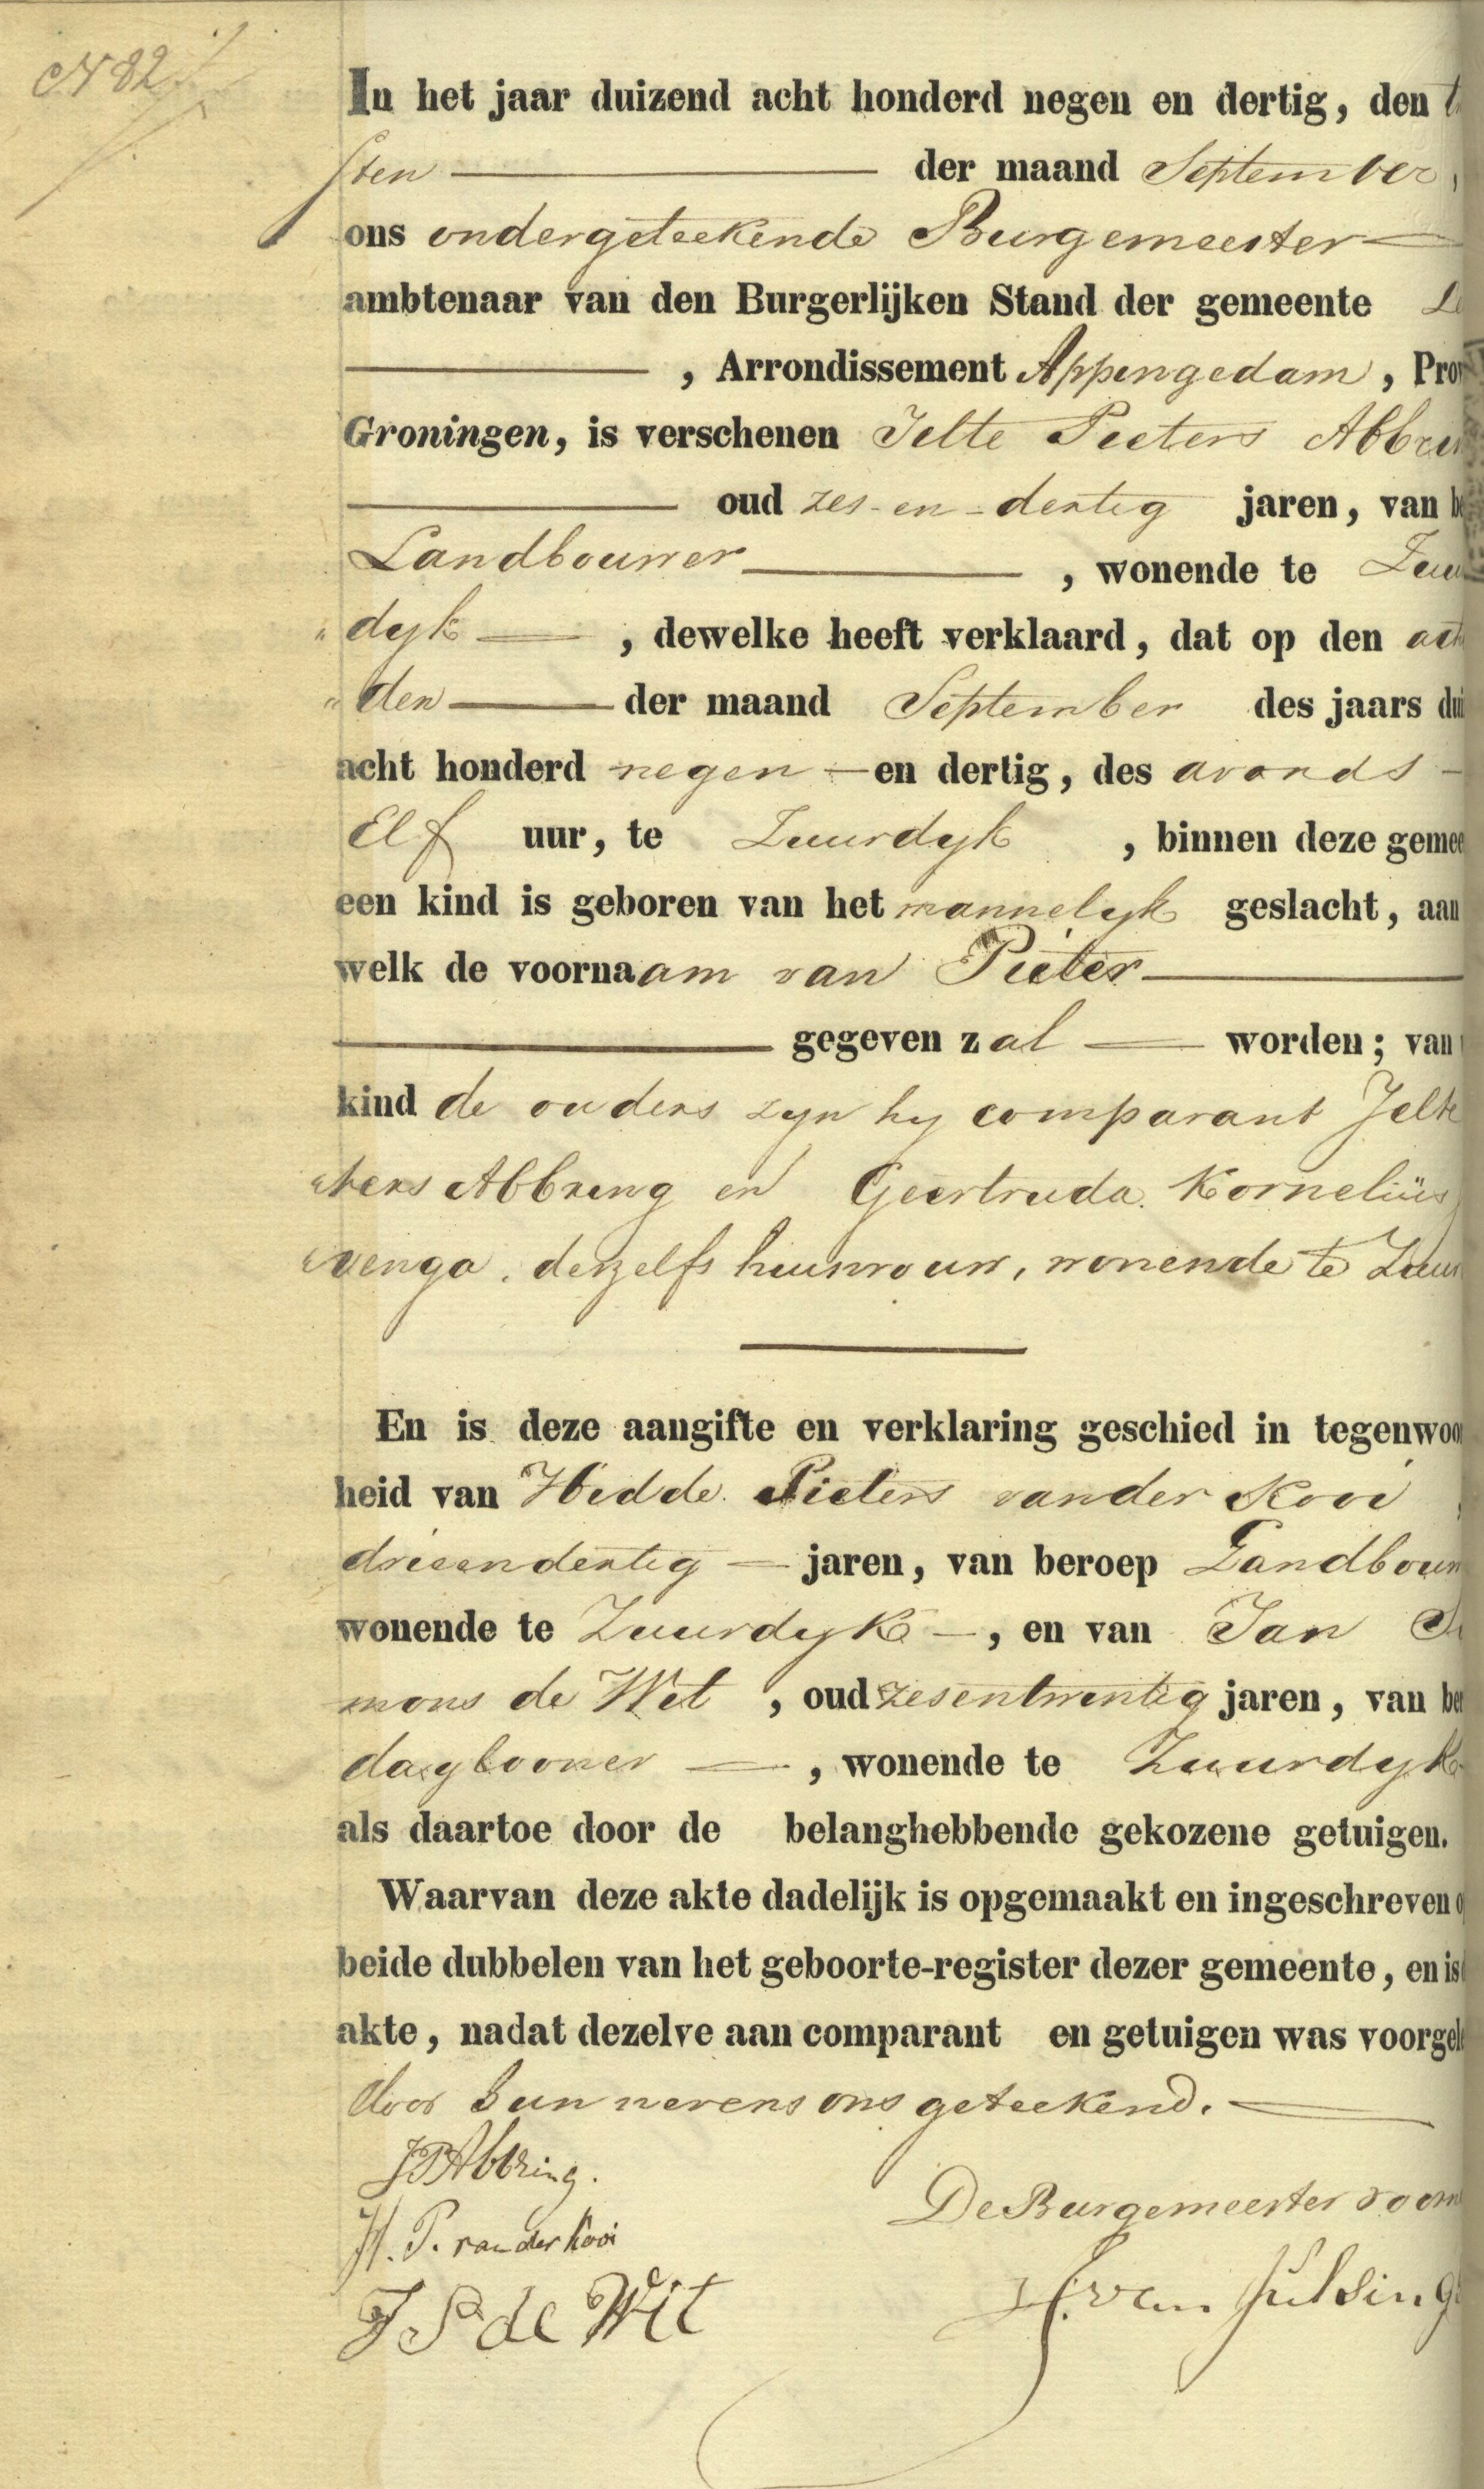 N 82
In het jaar duizend acht honderd negen en dertig, den t
sten der maand September,
ons ondergeteekende Burgemeester
ambtenaar van den Burgerlijken Stand der gemeente Le
, Arrondissement Appingedam, Prov
Groningen, is verschenen Jelte Pieters Abbrin
oud zes-en-dertig jaren, van be
Landbouwer, wonende te Zuur
dyk, dewelke heeft verklaard, dat op den ach
den der maand September des jaars dui
acht honderd negen en dertig, des avonds
Elf uur, te Zuurdyk, binnen deze gemee
een kind is geboren van het mannelyk geslacht, aan
welk de voornaam van Pieter
gegeven zal worden; van
kind de ouders zyn hy comparant Jelte
ters Abbring en Geertruda Kornelius
wenga, deszelfs huisvrouw, wonende te Zuur
En is deze aangifte en verklaring geschied in tegenwoor
heid van Hidde Pieters vander Kooi,
drieendertig jaren, van beroep Landbouw
wonende te Zuurdyk, en van Jan Si
mons de Wit, oud zesentwentig jaren, van ber
daglooner, wonende te Zuurdyk
als daartoe door de belanghebbende gekozene getuigen.
Waarvan deze akte dadelijk is opgemaakt en ingeschreven o
beide dubbelen van het geboorte-register dezer gemeente, en is
akte, nadat dezelve aan comparant en getuigen was voorgel
door hun nevens ons geteekend.
JPAbbring.
De Burgemeester voorn
H. P. van der Kooi
H. van Julsing
J S de Wit